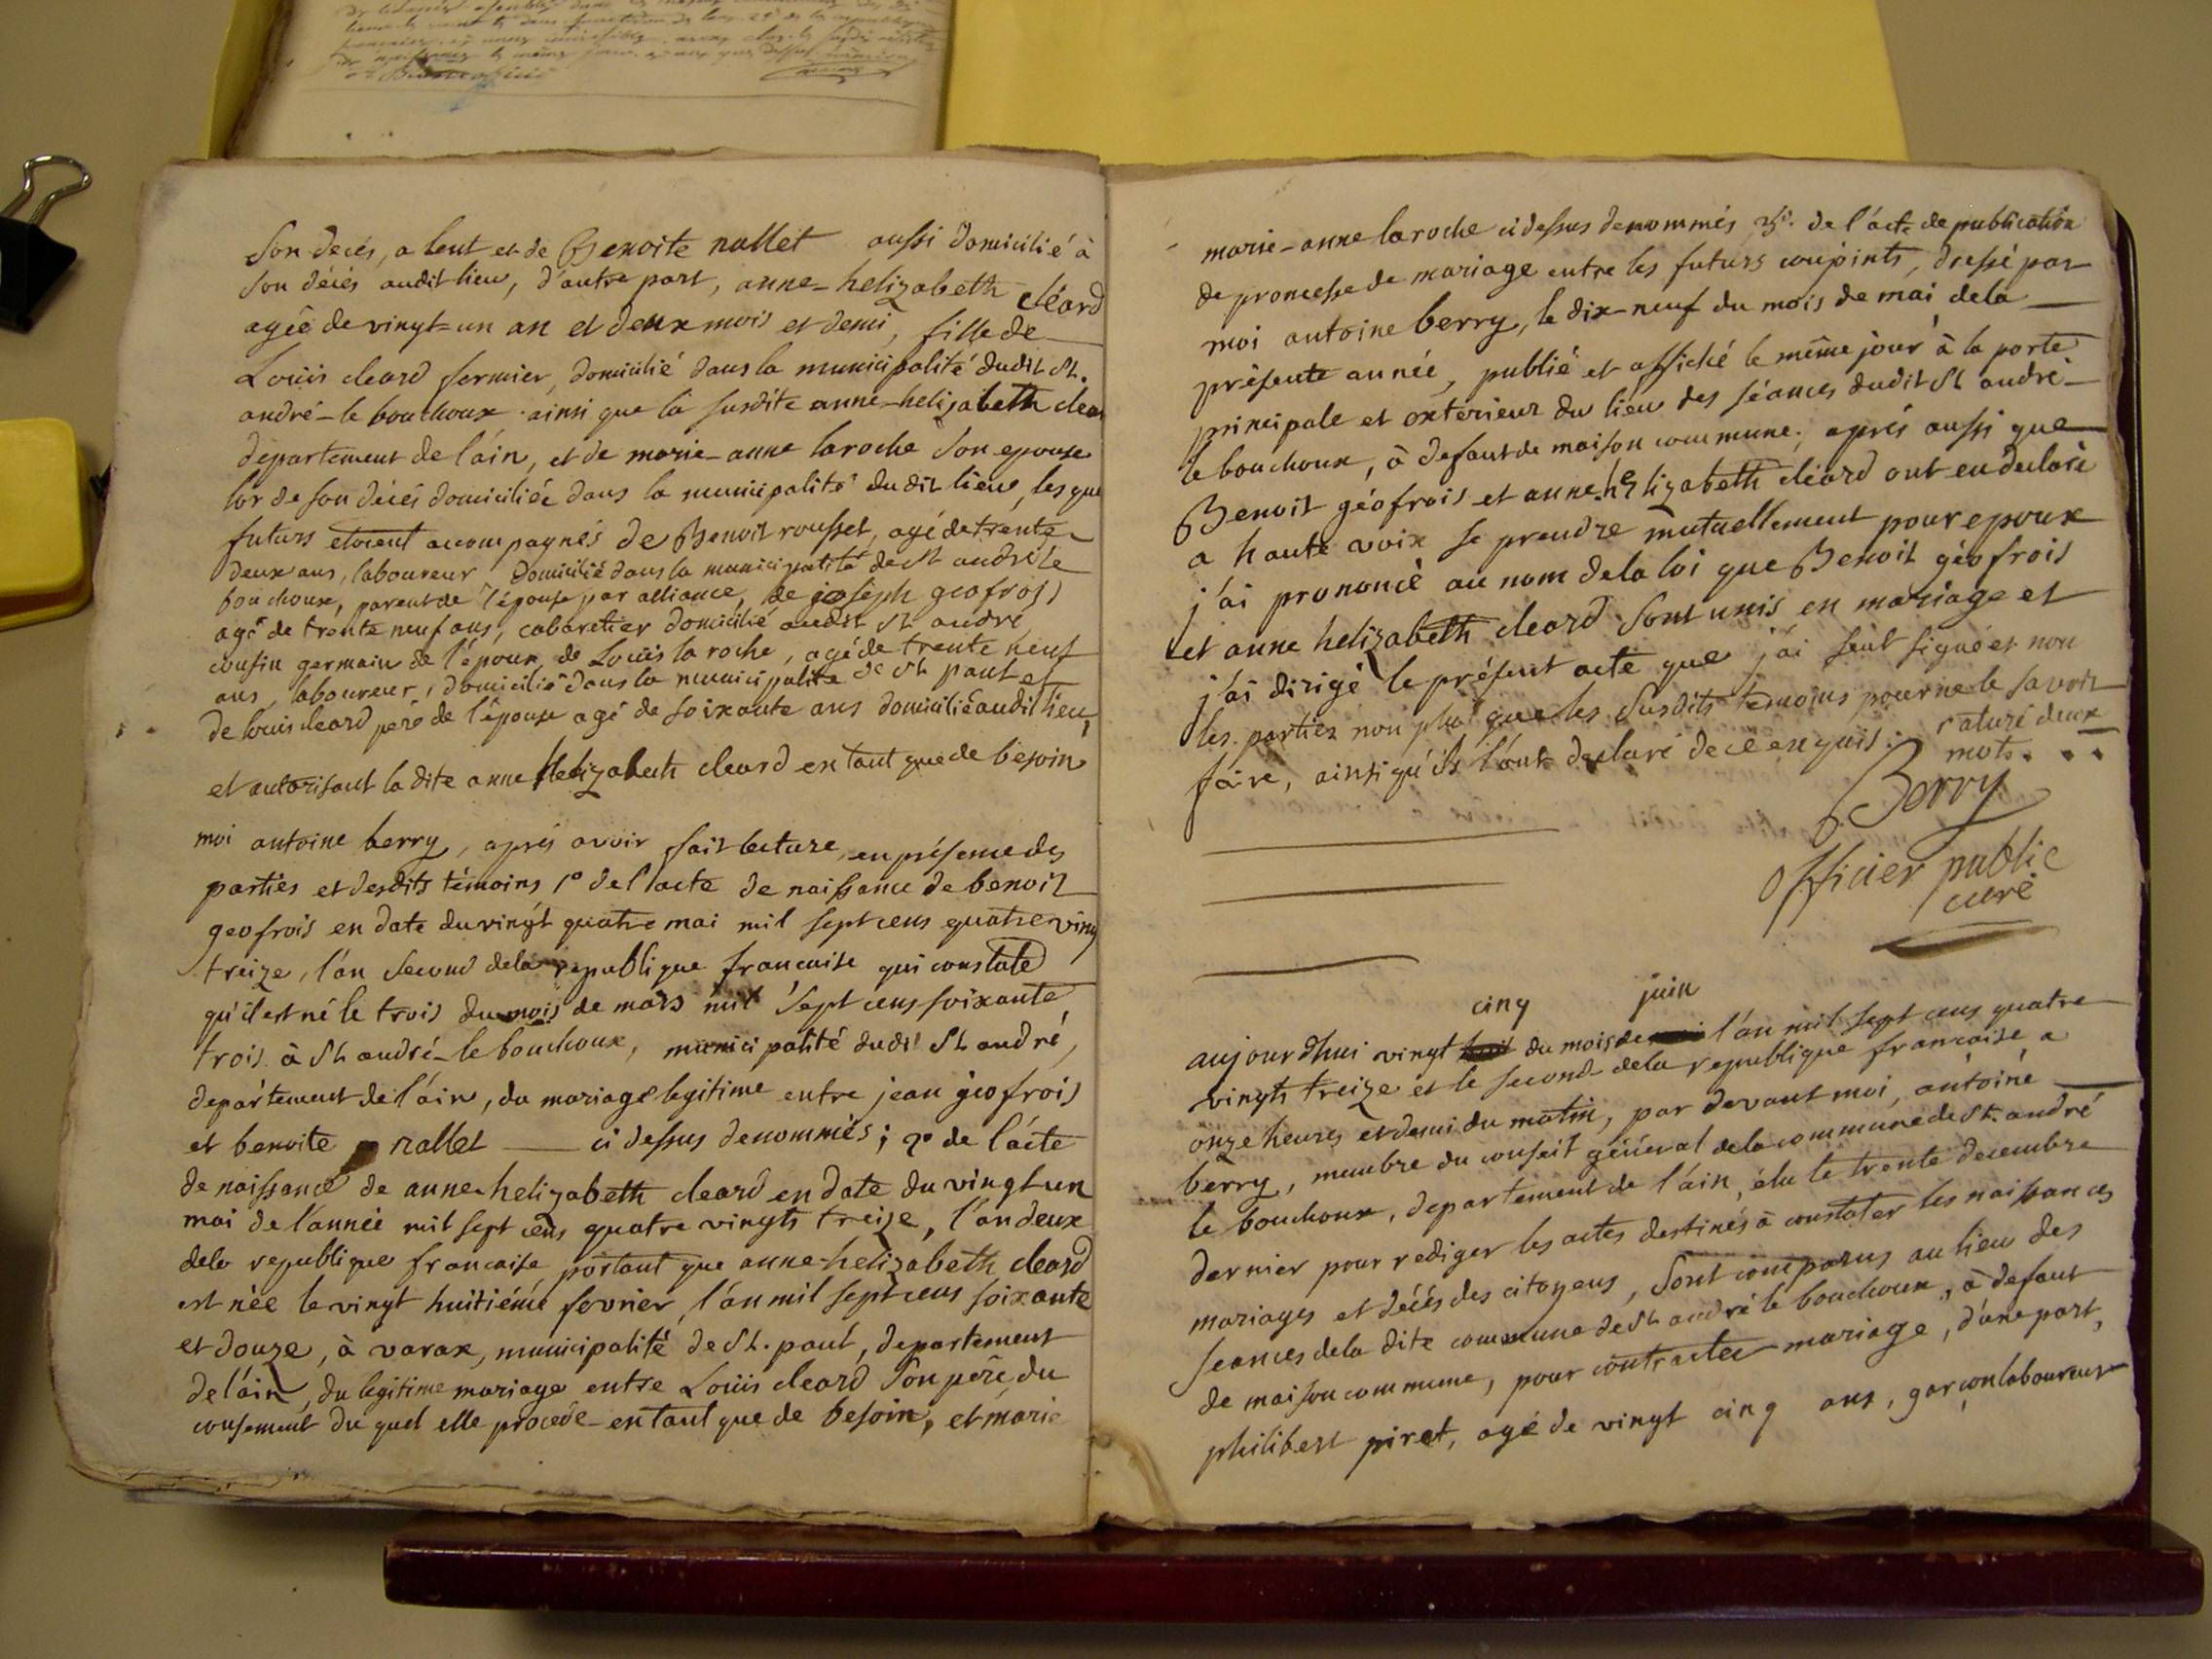 son decés, a lent et de Benoite nallet aussi domicilié à
son décés audit lieu, d'autre part, anne-helizabeth cléard
agée de vingt-un an et deux mois et demi, fille de
Louis cleard fermier, domicilié dans la municipalité dudit St.
andré-le bouchoux ainsi que la susdite anne-helizabeth clear
département de l'ain, et de marie-anne laroche son epouse
lor de son décés domiciliée dans la municipalité du dit lieu, les que
futurs etoient accompagnés de Benoit rousset, agé de trente
deux ans, laboureur domicilié dans la municipalité de St andré le
bouchoux, parent de l'épouse par alliance, de joseph geofrois
agé de trente neuf ans, cabaretier domicilié audit St andré
cousin germain de l'époux, de Louis la roche, agé de trente neuf
ans, laboureur, domicilié dans la municipalité de St paul et
de louis cleard pere de l'épouse agé de soixante ans domicilié audit lieu,
et autorisant la dite anne helizabeth cleard en tant que de besoin
moi antoine berry, aprés avoir fait lecture, en présence des
parties et desdits témoins 1º de l'acte de naissance de benoit
geofrois en date du vingt quatre mai mil sept cens quatre ving
treize, l'an second dela republique francaise qui constate
qu'il est né le trois du mois de mars mil sept cens soixante
trois à St andré-le bouchoux, municipalité dudt St andré,
departement de l'ain, du mariage legitime entre jean géofrois
et benoite nallet ci dessus denommés; 2º de l'acte
de naissance de anne-helizabeth cleard en date du vingt un
mai de l'année mil sept cens quatre vingts treize, l'an deux
dela republique francaise portant que anne-helizabeth cleard
est née le vingt huitiéme fevrier, l'an mil sept cens soixante
et douze, à varax, municipalité de St. paul, departement
de l'ain, du legitime mariage entre Louis cleard son pére, du
consement du quel elle procede en tant que de besoin, et marie
marie-anne laroche ci dessus denommés 3º. de l'acte de publication
de promesse de mariage entre les futurs conjoints, dressé par
moi antoine berry, le dix-neuf du mois de mai dela
présente année, publié et affiché le même jour à la porte
principale et exterieur du lieu des séances dudit St andré-
le bouchoux, à defaut de maison commune; aprés aussi que
Benoit géofrois et anne helizabeth cléard ont eu declaré
a haute voix se prendre mutuellement pour epoux
j'ai prononcé au nom dela loi que Benoit géofrois
et anne helizabeth cleard sont unis en mariage et
j'ai dirigé le présent acte que j'ai seul signé et non
les parties non plus que les susdits temoins pour ne le savoir
faire, ainsi qu'ils l'ont declaré de ce enquis. raturé deux
mots.
Berry
officier public
curé
cinq juin
aujourdhui vingt huit du mois de mai l'an mil sept cens quatre
vingts treize et le second dela republique francaise a
onze heures et demi du matin, par devant moi, antoine
berry, membre du conseil général dela commune de St. andré
le bouchoux, departement de l'ain, élu le trente decembre
dernier pour rediger les actes destinés à constater les naissances
mariages et décés des citoyens, sont comparus au lieu des
seances dela dite commune de St andré le bouchoux, à defaut
de maison commune, pour contracter mariage, d'une part,
philibert piret, agé de vingt cinq ans, garçon laboureur